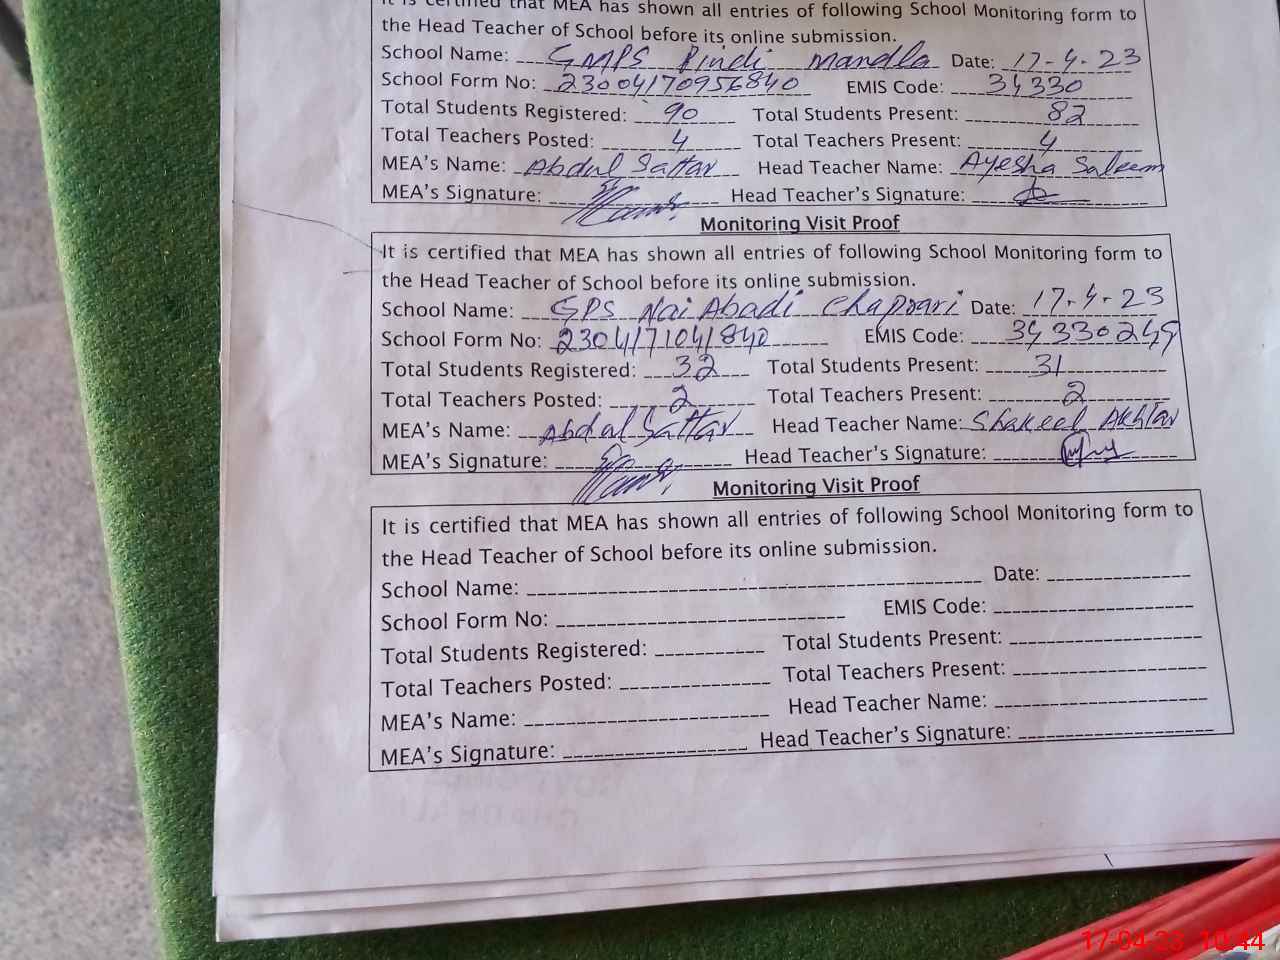 It is certified that MEA has shown all entries of following School Monitoring form to
the Head Teacher of School before its online submission.
School Name: GMPS Pindi Mandla Date: 17-4-23
School Form No: 23004170956840 EMIS Code: 34330
Total Students Registered: 90 Total Students Present: 82
Total Teachers Posted: 4 Total Teachers Present: 4
MEA's Name: Abdul Sattar Head Teacher Name: Ayesha Saleem
MEA's Signature: Head Teacher's Signature:
Monitoring Visit Proof
It is certified that MEA has shown all entries of following School Monitoring form to
the Head Teacher of School before its online submission.
School Name: GPS Nai Abadi Chapprari Date: 17-4-23
School Form No: 2304171041840 EMIS Code: 34330249
Total Students Registered: 32 Total Students Present: 31
Total Teachers Posted: 2 Total Teachers Present: 2
MEA's Name: Abdul Sattar Head Teacher Name: Shakeel Akhtar
MEA's Signature: Head Teacher's Signature:
Monitoring Visit Proof
It is certified that MEA has shown all entries of following School Monitoring form to
the Head Teacher of School before its online submission.
School Name: Date:
School Form No: EMIS Code:
Total Students Registered: Total Students Present:
Total Teachers Posted: Total Teachers Present:
MEA's Name: Head Teacher Name:
MEA's Signature: Head Teacher's Signature:
17-04-23 10:44